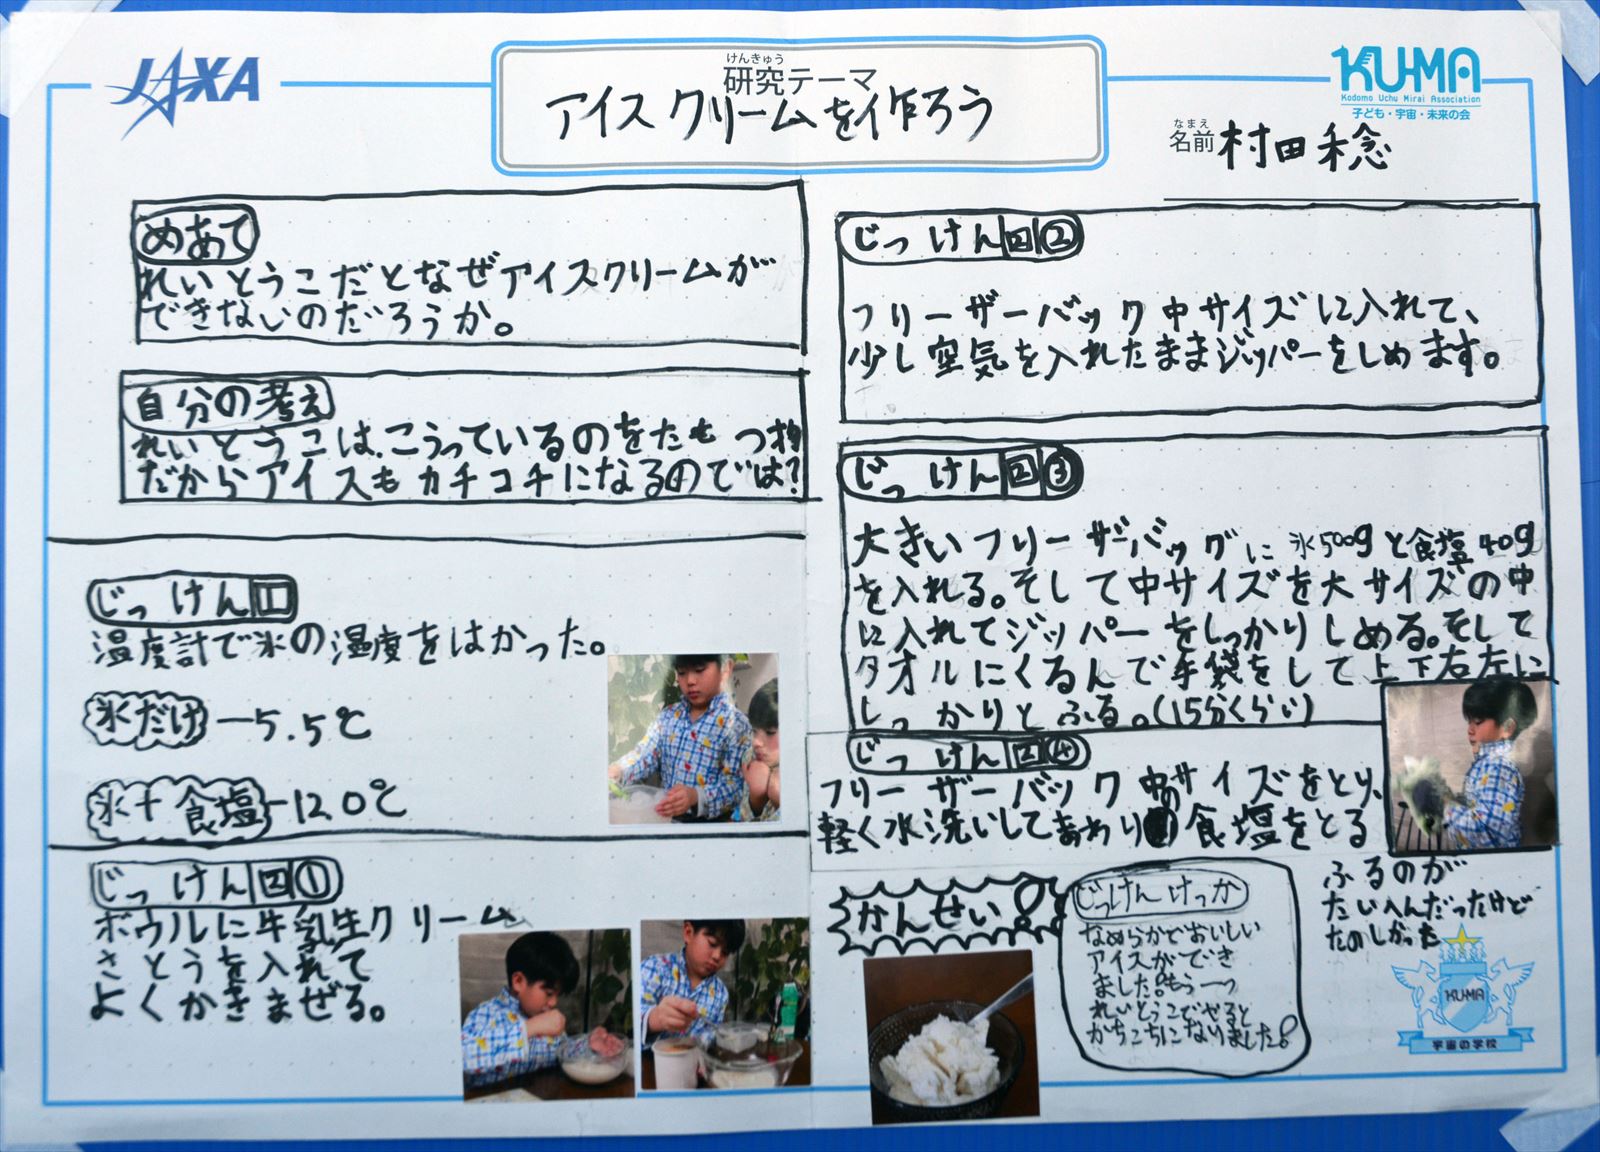 JAXA
けんきゅう
研究テーマ
アイスクリームを作ろう
KU-MA
Kodomo Uchu Mirai Association
子ども・宇宙・未来の会
なまえ
名前 村田稔
めあて
れいとうこだとなぜアイスクリームが
できないのだろうか。
自分の考え
れいとうこは、こうっているのをたもつ物
だからアイスもカチコチになるのでは?
じっけん1
温度計で氷の温度をはかった。
氷だけ -5.5℃
氷+食塩 -12.0℃
じっけん2①
ボウルに牛乳生クリーム
さとうを入れて
よくかきまぜる。
じっけん2②
フリーザーバック中サイズに入れて、
少し空気を入れたままジッパーをしめます。
じっけん2③
大きいフリーザーバッグに氷500gと食塩40g
を入れる。そして中サイズを大サイズの中
に入れてジッパーをしっかりしめる。そして
タオルにくるんで手袋をして上下右左に
しっかりとふる。(15分くらい)
じっけん2④
フリーザーバック中サイズをとり、
軽く水洗いしてまわりの食塩をとる
ふるのが
たいへんだったけど
たのしかった
かんせい!
じっけんけっか
なめらかでおいしい
アイスができ
ました。もう一つ
れいとうこでやると
かちこちになりました!
KU-MA
宇宙の学校